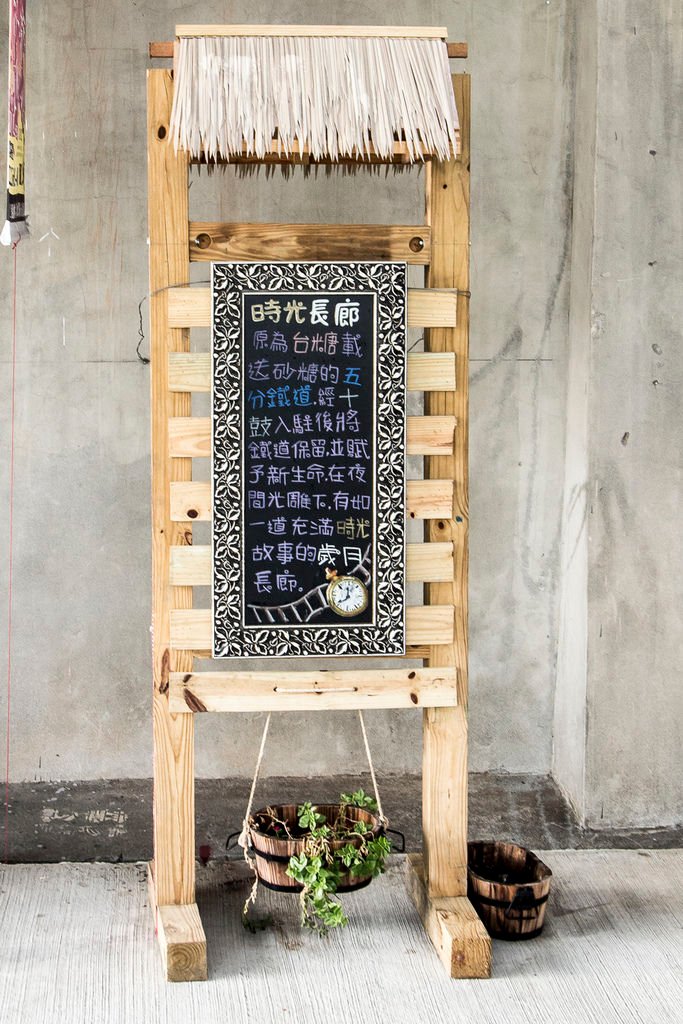 時光長廊
原為台糖載
送砂糖的五
分鐵道.經十
鼓入駐後將
鐵道保留,並賦
予新生命.在夜
間光雕下.有如
一道充滿時光
故事的歲月
長廊。